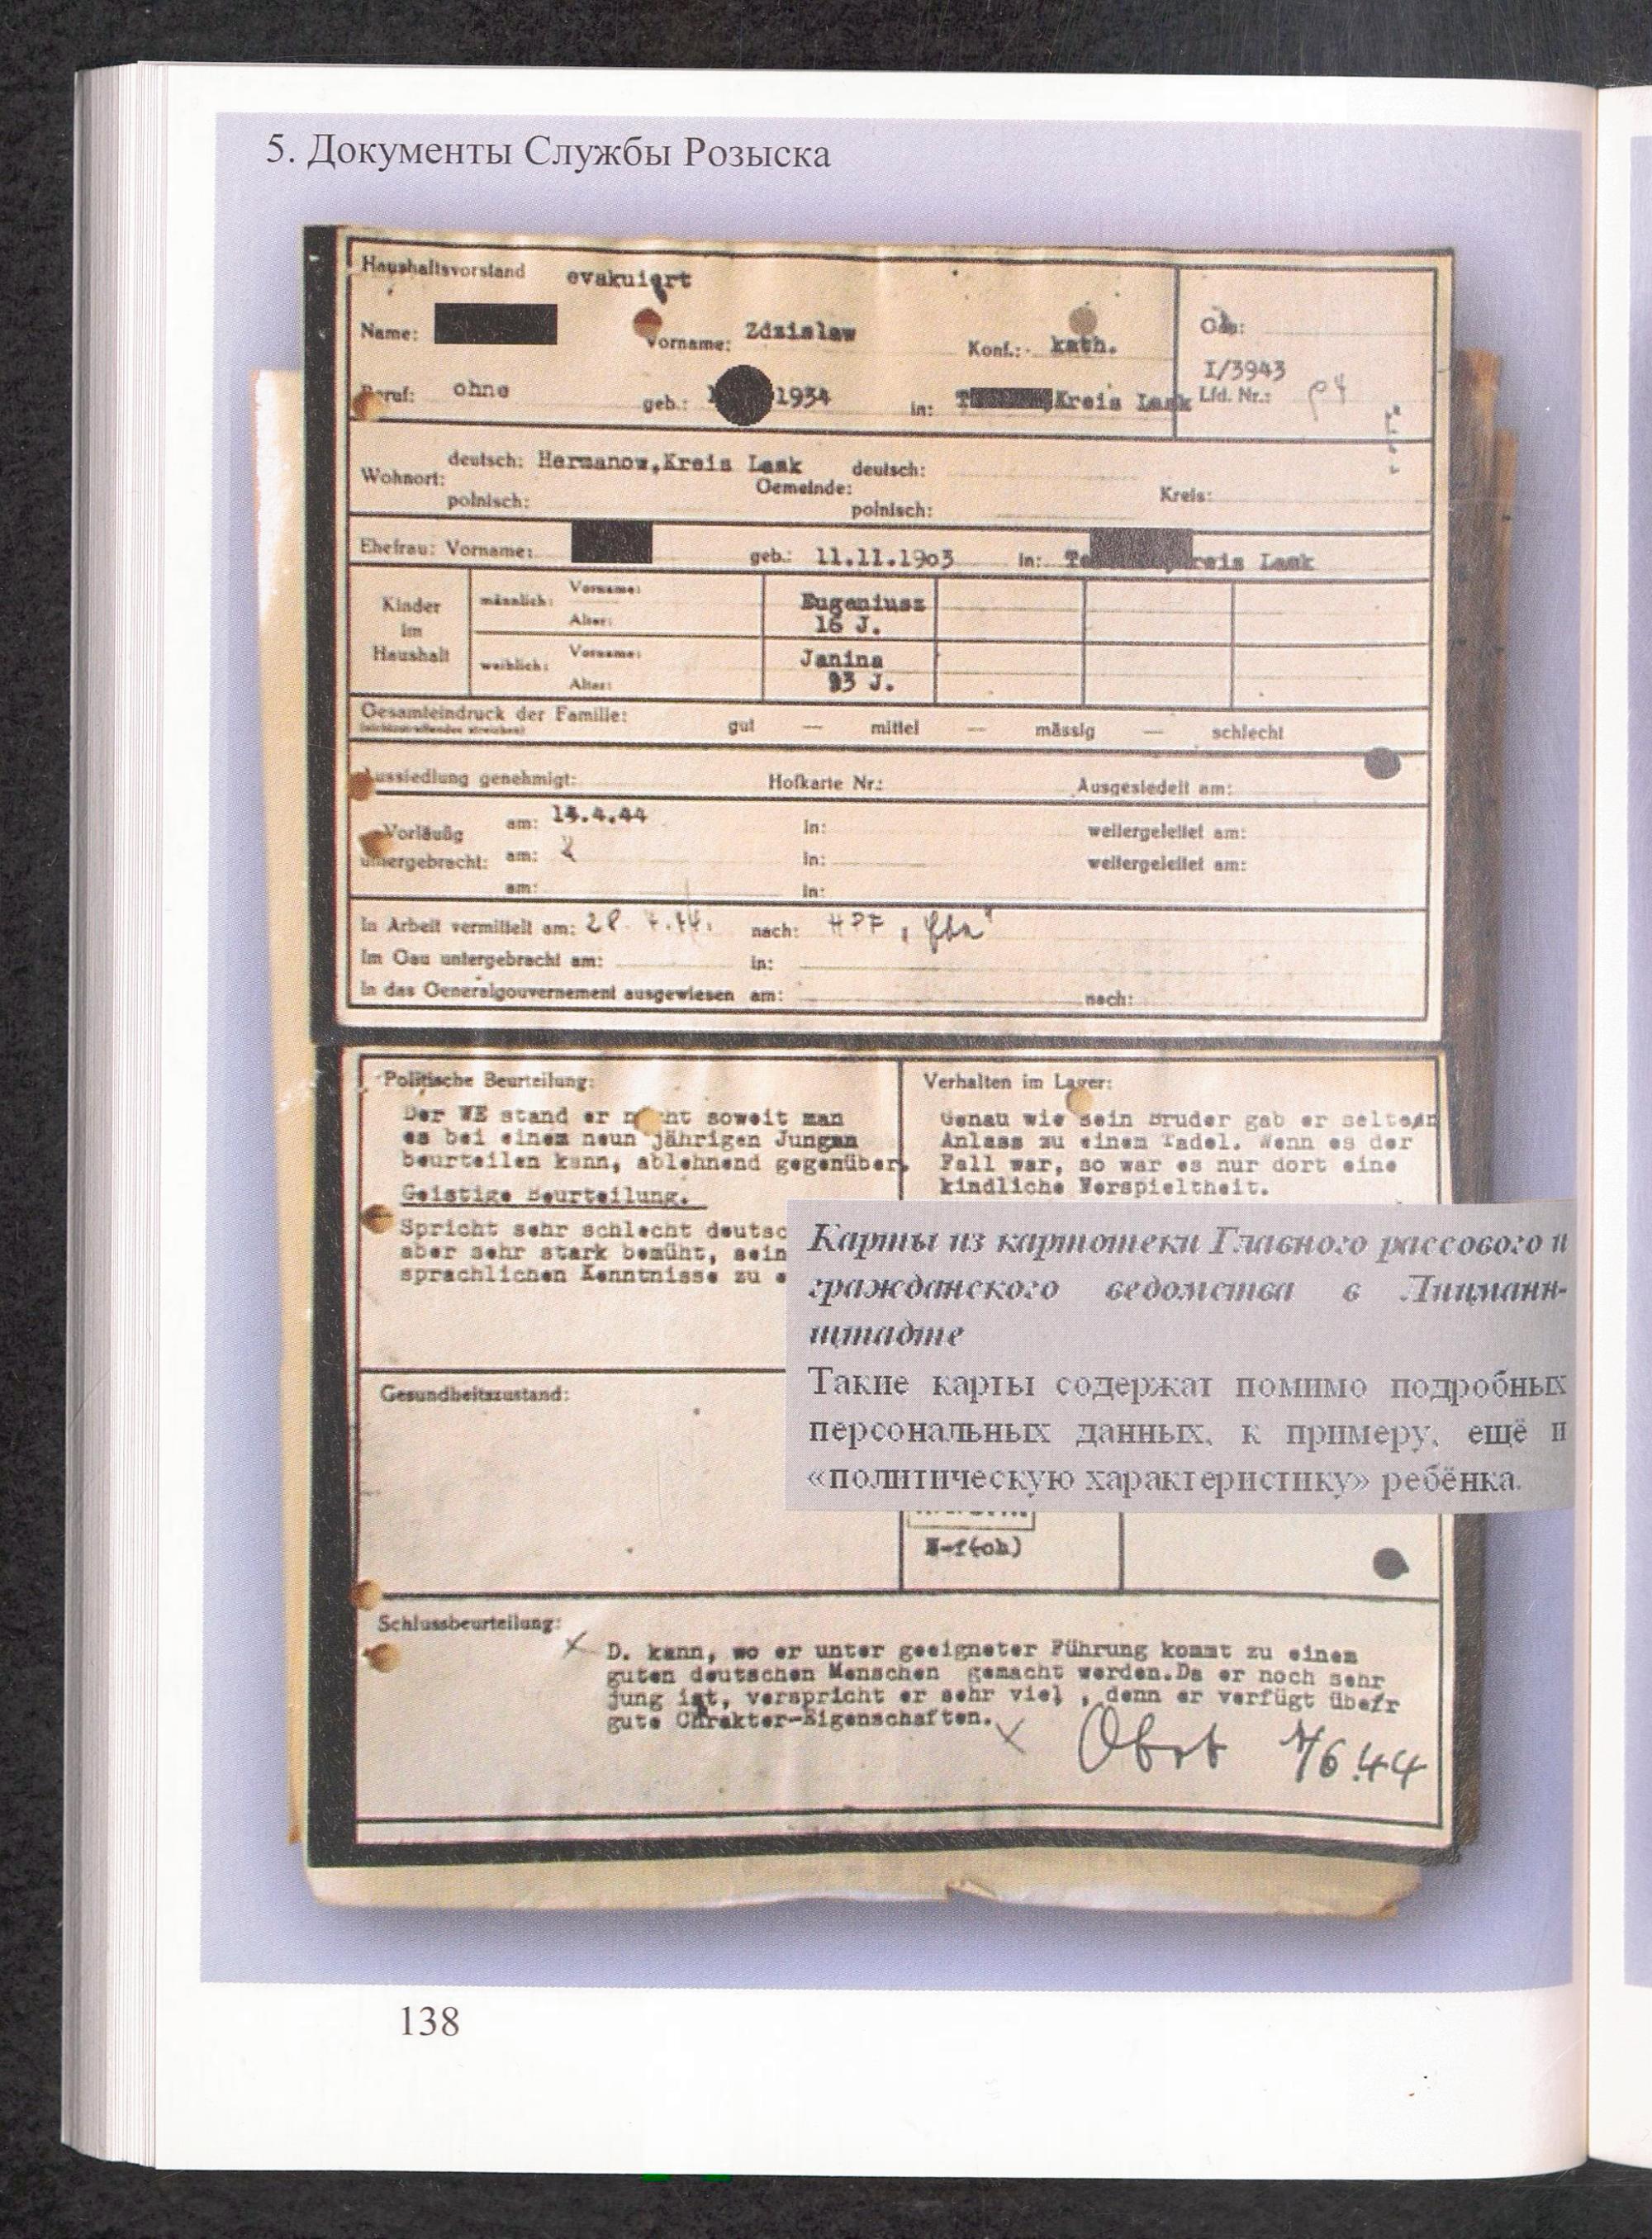 5. Документы Службы Розыска
Haushaltsvorstand evakuiert
Name: Vorname: Zdzislaw Konf.: kath. Gau:
Beruf: ohne geb.: 1934 in: T Kreis Lask
I/3943
Lfd. Nr.:
Wohnort: deutsch: Hermanow,Kreis Lask deutsch:
Gemeinde: Kreis:
polnisch: polnisch:
Ehefrau: Vorname: geb.: 11.11.1903 in: Kreis Lask
Kinder im Haushalt
männlich: Vorname: Eugeniusz
Alter: 16 J.
weiblich: Vorname: Janina
Alter: 13 J.
Gesamteindruck der Familie: gut — mittel — mässig — schlecht
Aussiedlung genehmigt: Hofkarte Nr.: Ausgesiedelt am:
Vorläufig untergebracht:
am: 14.4.44 in: weitergeleitet am:
am: in: weitergeleitet am:
am: in:
In Arbeit vermittelt am: nach:
Im Gau untergebracht am: in:
In das Generalgouvernement ausgewiesen am: nach:
Politische Beurteilung:
Der WE stand er nicht soweit man
es bei einem neun jährigen Jungen
beurteilen kann, ablehnend gegenüber.
Geistige Beurteilung.
Spricht sehr schlecht deutsc
aber sehr stark bemüht, sein
sprachlichen Kenntnisse zu e
Verhalten im Lager:
Genau wie sein Bruder gab er selten
Anlass zu einem Tadel. Wenn es der
Fall war, so war es nur dort eine
kindliche Verspieltheit.
Карты из картотеки Главного рассового и
гражданского ведомства в Лицманн-
штадте
Такие карты содержат помимо подробных
персональных данных, к примеру, ещё и
«политическую характеристику» ребёнка.
Gesundheitszustand:
Schlussbeurteilung:
D. kann, wo er unter geeigneter Führung kommt zu einem
guten deutschen Menschen gemacht werden.Da er noch sehr
jung ist, verspricht er sehr viel , denn er verfügt übefr
gute Chrakter-Eigenschaften.
138